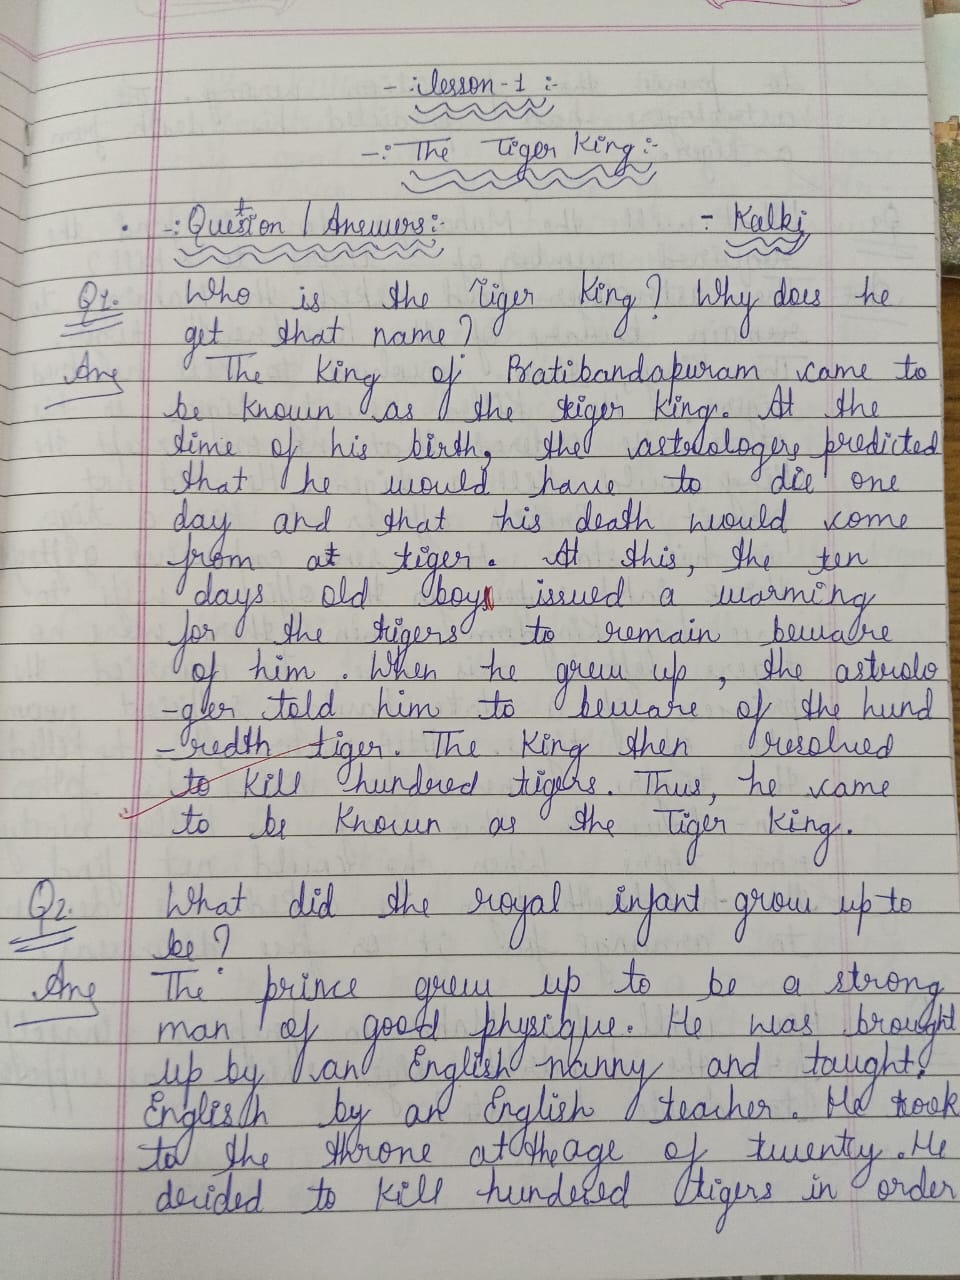 -: lesson-1 :-
-: The Tiger King :-
-: Question / Answers :- - Kalki
Q1. Who is the Tiger King? Why does he
get that name?
Ans The King of Pratibandapuram came to
be known as the tiger King. At the
time of his birth, the astrologers predicted
that he would have to die one
day and that his death would come
from at tiger. At this, the ten
days old boy issued a warming
for the tigers to remain beware
of him. When he grew up, the astrolo
-ger told him to beware of the hund
-redth tiger. The King then resolved
to kill hundred tigers. Thus, he came
to be Known as the Tiger King.
Q2. What did the royal infant grow up to
be?
Ans The prince grew up to be a strong
man of good physique. He was brought
up by an English nanny and taught
English by an English teacher. He took
to the throne at the age of twenty. He
decided to kill hundered tigers in order